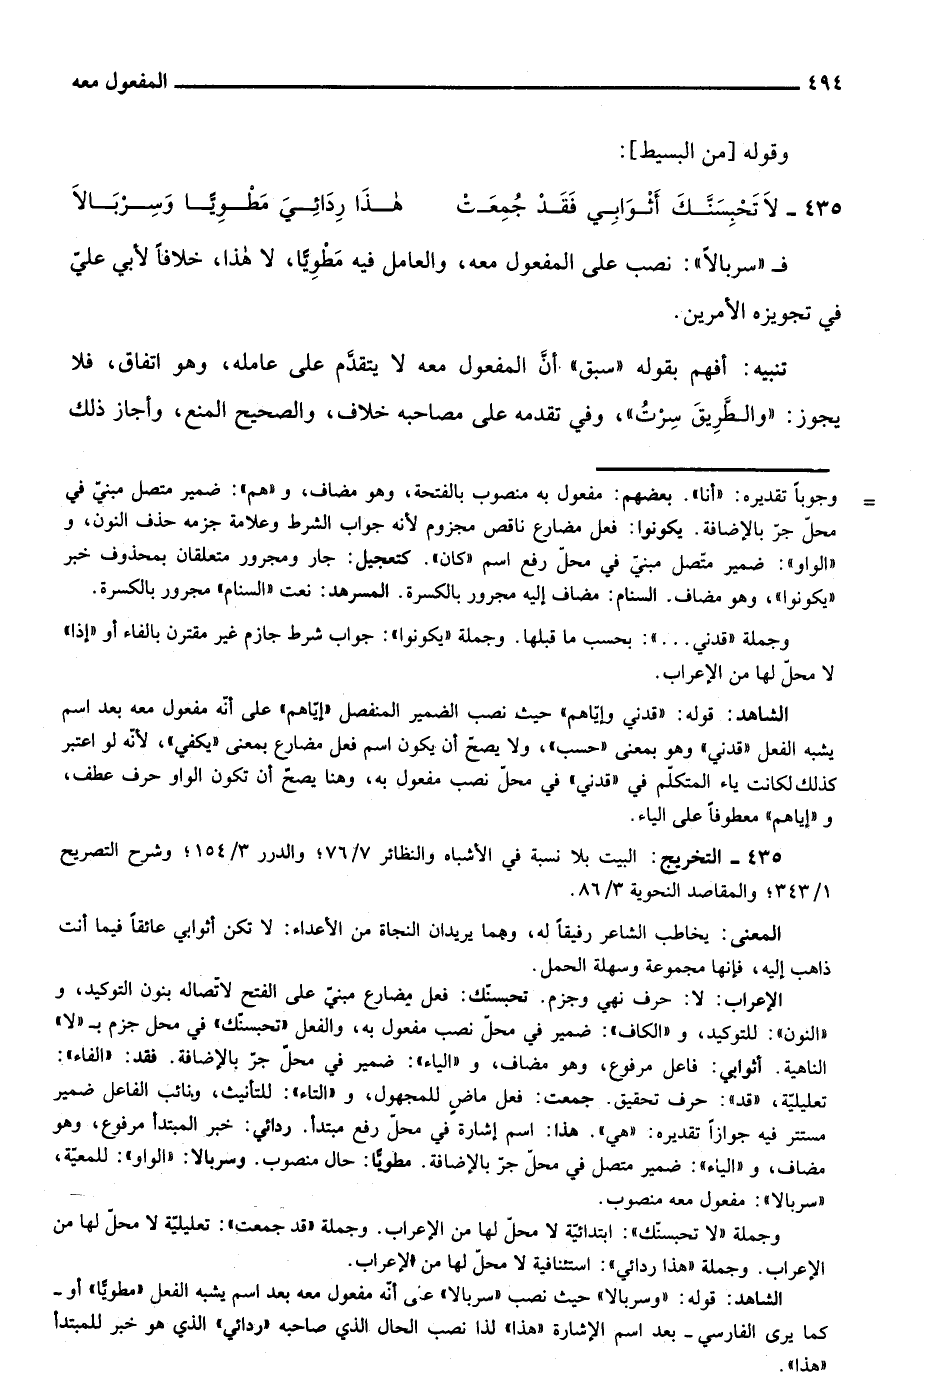 ٤٩٤ المفعول معه
وقوله [من البسيط]:
٤٣٥ ـ لاَ تَحْبِسَنَّـكَ أَثْـوَابِـي فَقَـدْ جُمِعَـتْ هٰـذَا رِدَائِـيَ مَطْـوِيًّـا وَسِـرْبَـالاَ
فـ «سربالاً»: نصب على المفعول معه، والعامل فيه مَطْوِيًّا، لا هٰذا، خلافاً لأبي عليّ
في تجويزه الأمرين.
تنبيه: أفهم بقوله «سبق» أنَّ المفعول معه لا يتقدَّم على عامله، وهو اتفاق، فلا
يجوز: «والطَّرِيقَ سِرْتُ»، وفي تقدمه على مصاحبه خلاف، والصحيح المنع، وأجاز ذلك
= وجوباً تقديره: «أنا». بعضهم: مفعول به منصوب بالفتحة، وهو مضاف، و «هم»: ضمير متصل مبنيّ في
محلّ جرّ بالإضافة. يكونوا: فعل مضارع ناقص مجزوم لأنه جواب الشرط وعلامة جزمه حذف النون، و
«الواو»: ضمير متّصل مبنيّ في محلّ رفع اسم «كان». كتعجيل: جار ومجرور متعلقان بمحذوف خبر
«يكونوا»، وهو مضاف. السنام: مضاف إليه مجرور بالكسرة. المسرهد: نعت «السنام» مجرور بالكسرة.
وجملة «قدني...»: بحسب ما قبلها. وجملة «يكونوا»: جواب شرط جازم غير مقترن بالفاء أو «إذا»
لا محلّ لها من الإعراب.
الشاهد: قوله: «قدني وإيّاهم» حيث نصب الضمير المنفصل «إيّاهم» على أنّه مفعول معه بعد اسم
يشبه الفعل «قدني» وهو بمعنى «حسب»، ولا يصحّ أن يكون اسم فعل مضارع بمعنى «يكفي»، لأنّه لو اعتبر
كذلك لكانت ياء المتكلّم في «قدني» في محلّ نصب مفعول به، وهنا يصحّ أن تكون الواو حرف عطف،
و «إياهم» معطوفاً على الياء.
٤٣٥ ـ التخريج: البيت بلا نسبة في الأشباه والنظائر ٧٦/٧؛ والدرر ١٥٤/٣؛ وشرح التصريح
٣٤٣/١؛ والمقاصد النحوية ٨٦/٣.
المعنى: يخاطب الشاعر رفيقاً له، وهما يريدان النجاة من الأعداء: لا تكن أثوابي عائقاً فيما أنت
ذاهب إليه، فإنها مجموعة وسهلة الحمل.
الإعراب: لا: حرف نهي وجزم. تحبسنّك: فعل مضارع مبنيّ على الفتح لاتّصاله بنون التوكيد، و
«النون»: للتوكيد، و «الكاف»: ضمير في محلّ نصب مفعول به، والفعل «تحبسنّك» في محل جزم بـ «لا»
الناهية. أثوابي: فاعل مرفوع، وهو مضاف، و «الياء»: ضمير في محلّ جرّ بالإضافة. فقد: «الفاء»:
تعليليّة، «قد»: حرف تحقيق. جمعت: فعل ماضٍ للمجهول، و «التاء»: للتأنيث، ونائب الفاعل ضمير
مستتر فيه جوازاً تقديره: «هي». هذا: اسم إشارة في محلّ رفع مبتدأ. ردائي: خبر المبتدأ مرفوع، وهو
مضاف، و «الياء»: ضمير متصل في محلّ جرّ بالإضافة. مطويًّا: حال منصوب. وسربالا: «الواو»: للمعيّة،
«سربالا»: مفعول معه منصوب.
وجملة «لا تحبسنّك»: ابتدائيّة لا محلّ لها من الإعراب. وجملة «قد جمعت»: تعليليّة لا محلّ لها من
الإعراب. وجملة «هذا ردائي»: استئنافية لا محلّ لها من الإعراب.
الشاهد: قوله: «وسربالا» حيث نصب «سربالا» على أنّه مفعول معه بعد اسم يشبه الفعل «مطويًّا» أو ـ
كما يرى الفارسي ـ بعد اسم الإشارة «هذا» لذا نصب الحال الذي صاحبه «ردائي» الذي هو خبر للمبتدأ
«هذا».